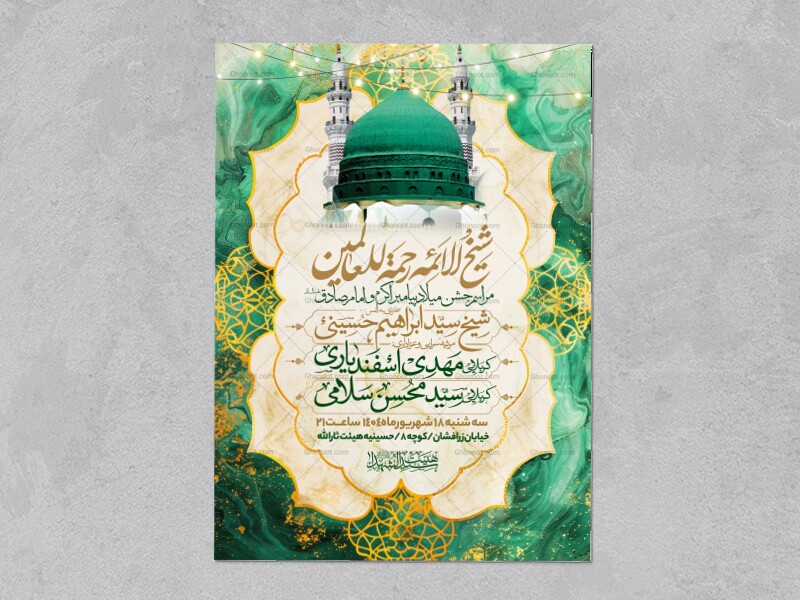 شیخ الائمه رحمة للعالمین
مراسم جشن میلاد پیامبر اکرم و امام صادق
شیخ سید ابراهیم حسینی
مرثیه سرایی و عزاداری:
کربلایی مهدی اسفندیاری
کربلایی سید محسن سلامی
سه شنبه ۱۸ شهریور ماه ۱۴۰۴ ساعت ۲۱
خیابان زرافشان / کوچه ۸ / حسینیه هیئت ثارالله
هیئت سیدالشهدا
Ghonoot.com